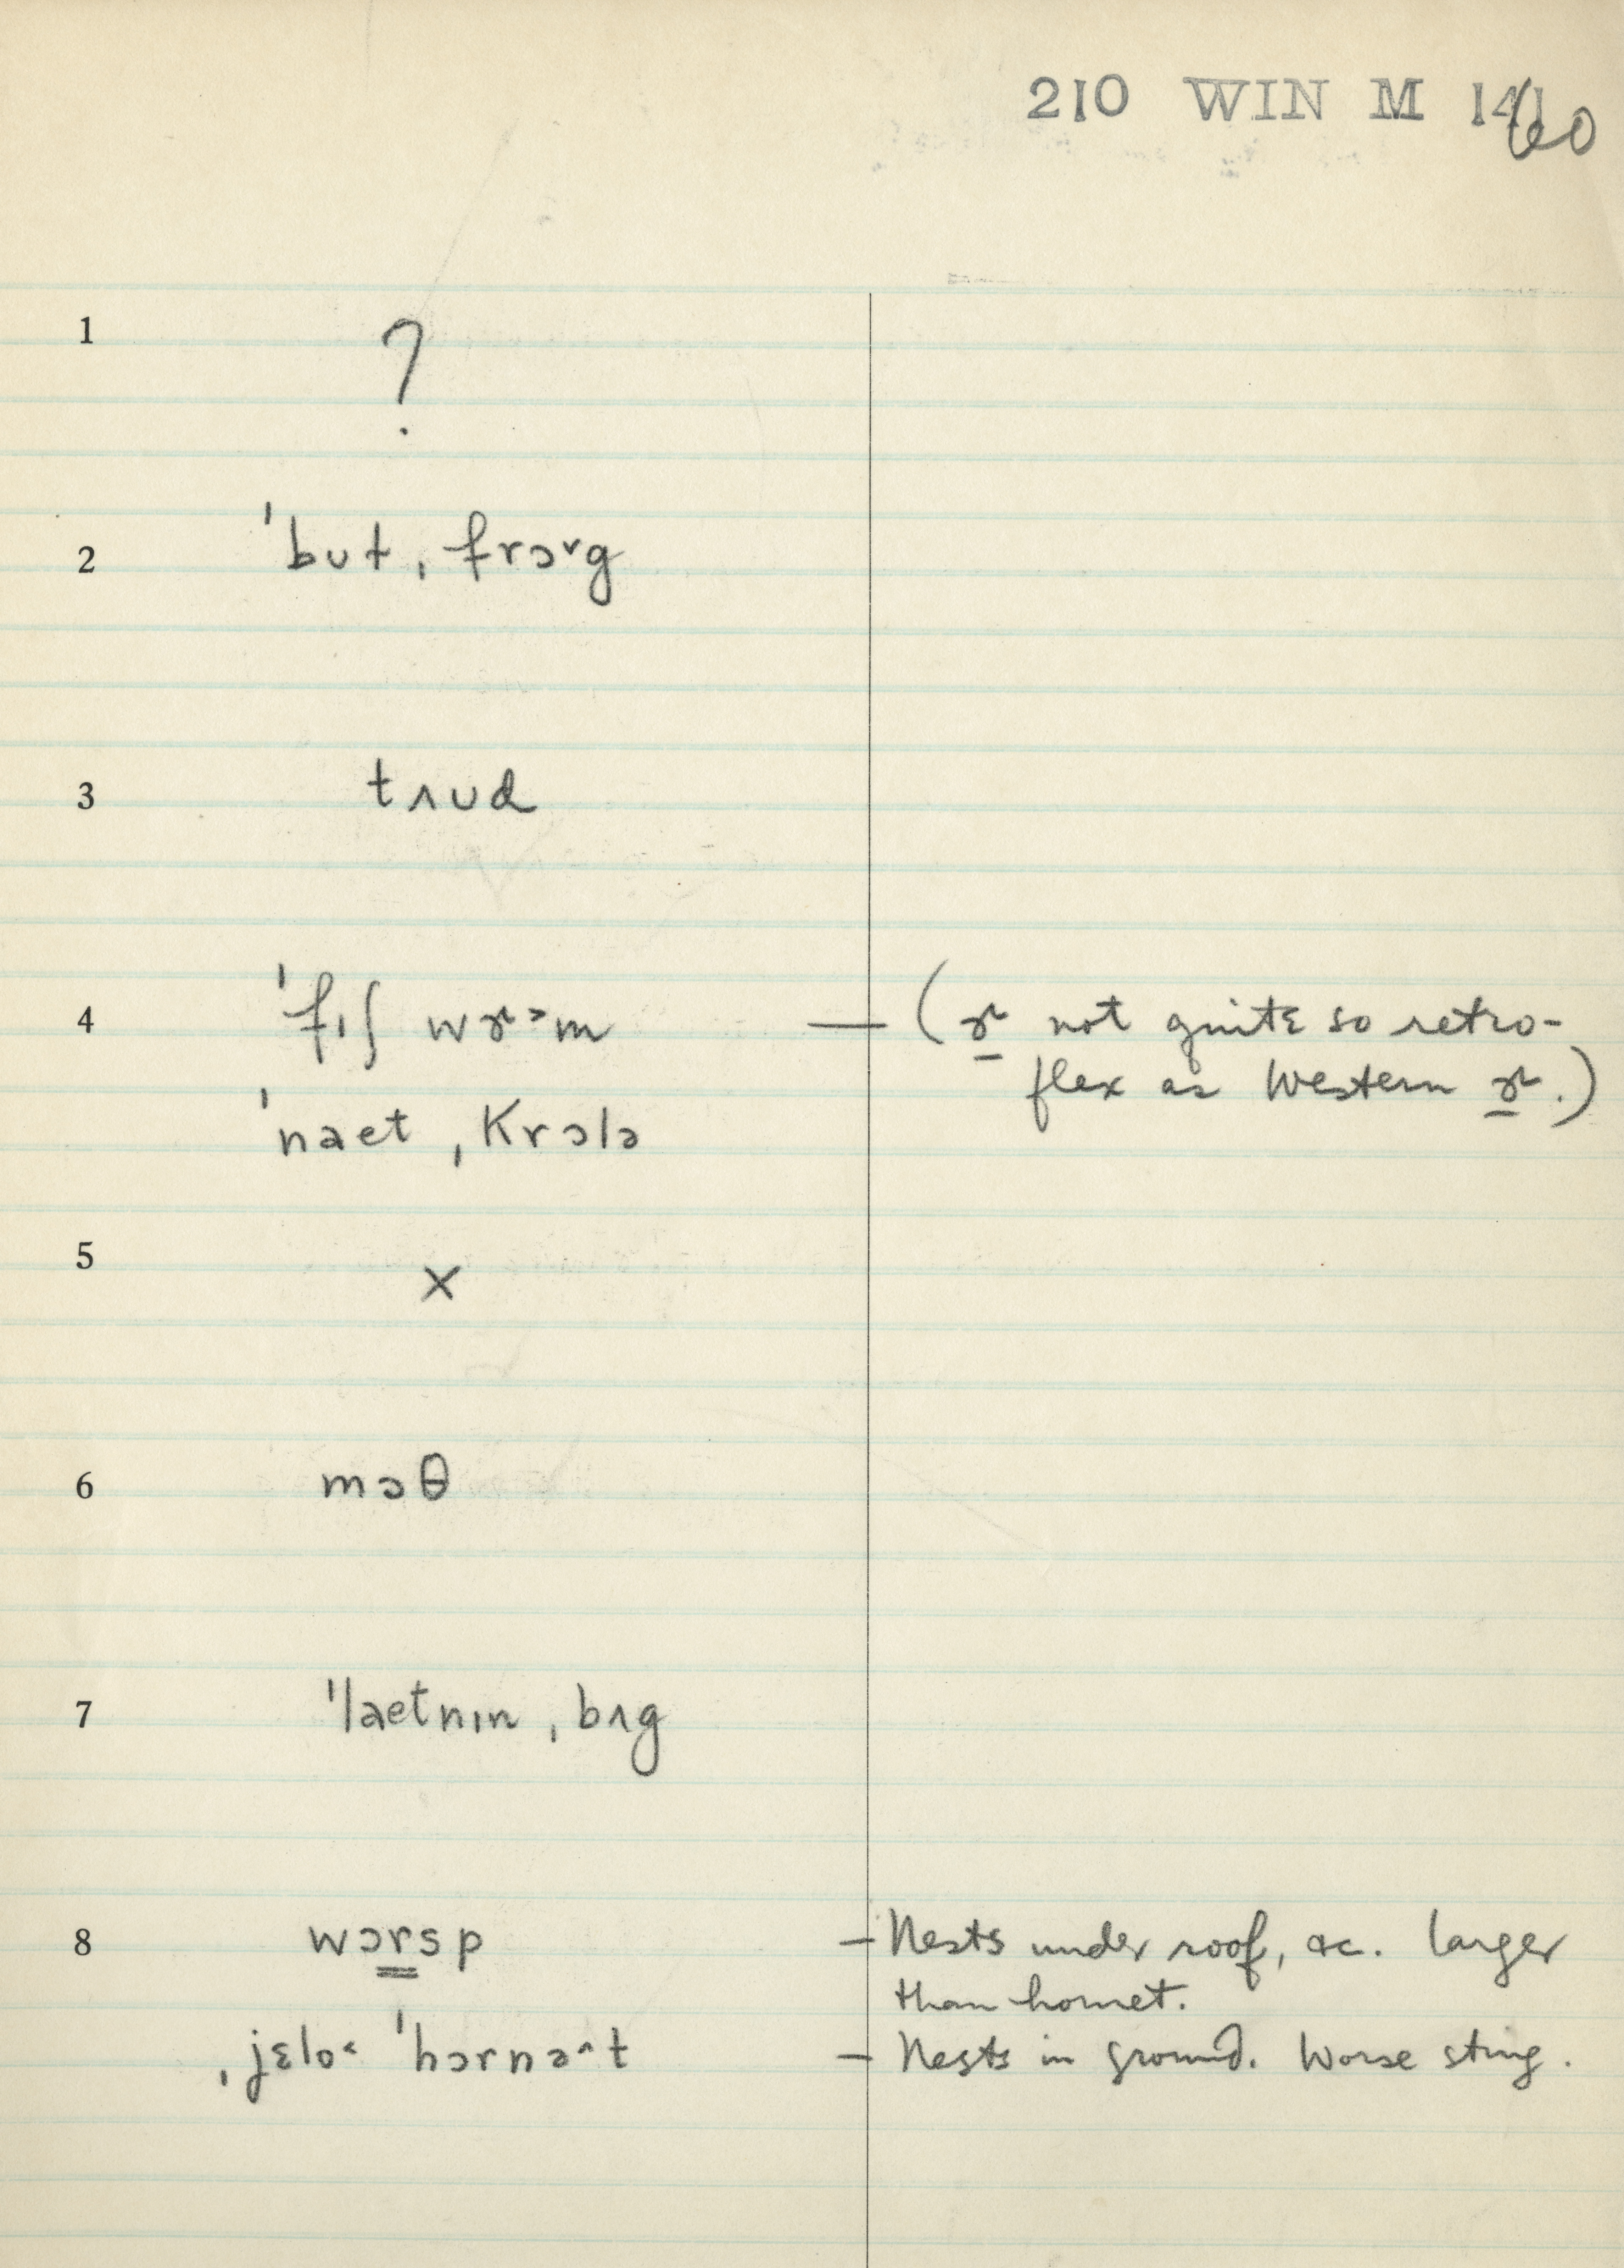 210 WIN M 1460
1 ?
2 ˈbʊt ˌfrɔ˅g
3 tʌʊd
4 ˈfɪʃ wɚ˃m — (ɚ not quite so retro-
flex as Western ɚ.)
ˈnaet ˌkrɔlə
5 x
6 mɔθ
7 ˈlaetnɪn ˌbʌg
8 wɔrsp — Nests under roof, &c. larger
than hornet.
ˌjɛlo˂ ˈhɔrnə^t — Nests in ground. Worse sting.